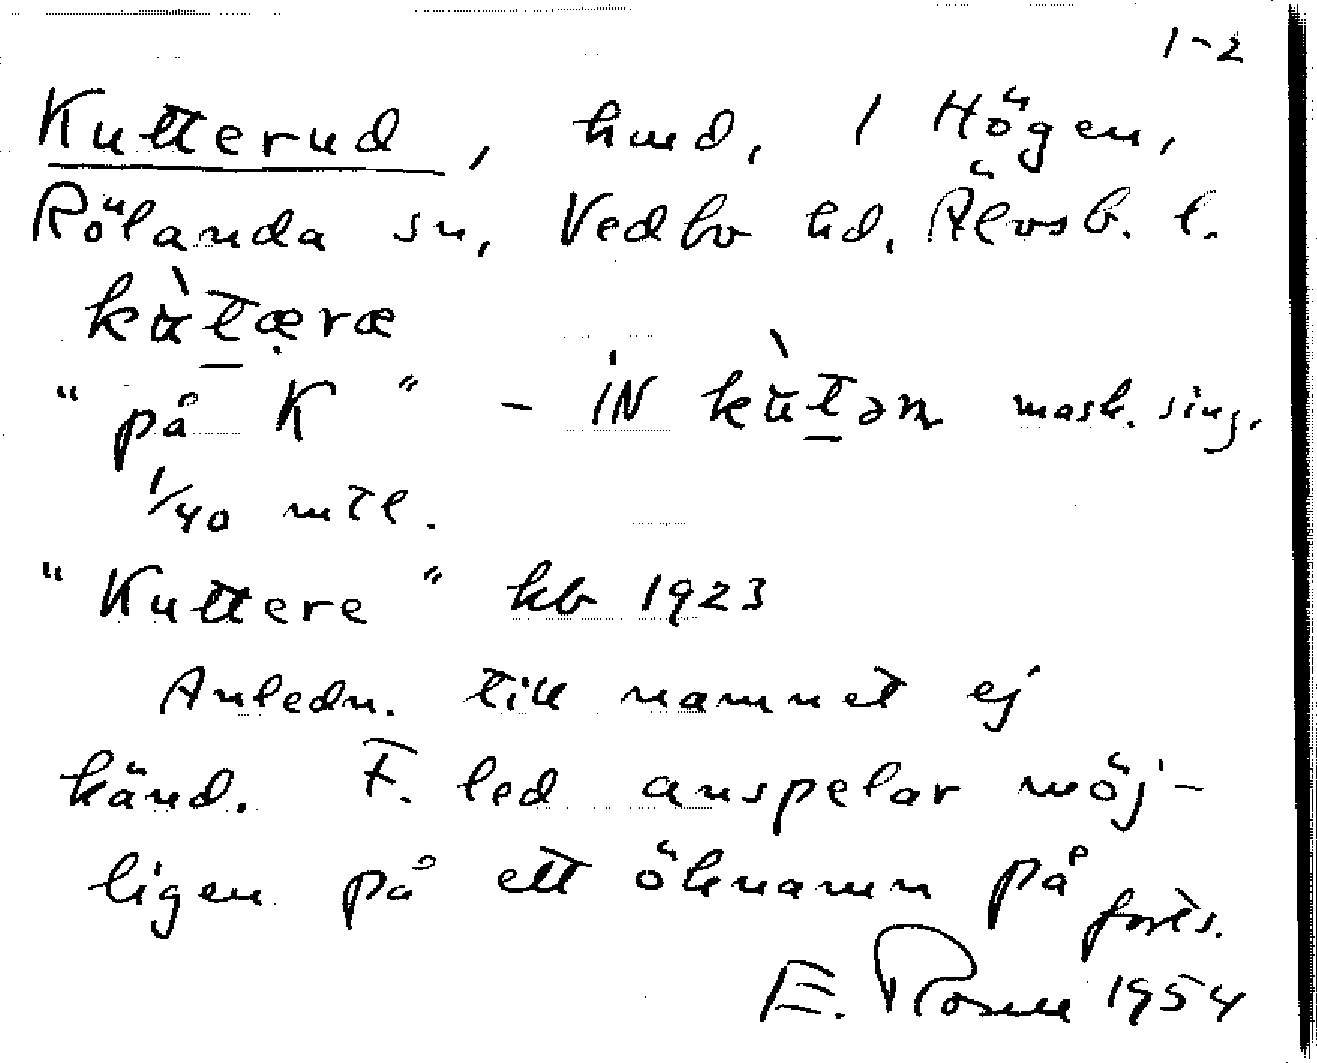 1-2
Kutterud, hmd, 1 Högen,
Rölanda sn, Vedbo hd, Älvsb. l.
kùt̲æræ
"på K" - iN kùt̲ən mask. sing.
1/40 mtl.
"Kuttere" kb 1923
Anledn. till namnet ej
känd. F. led anspelar möj-
ligen på ett öknamn på
forts.
E. Rosell 1954